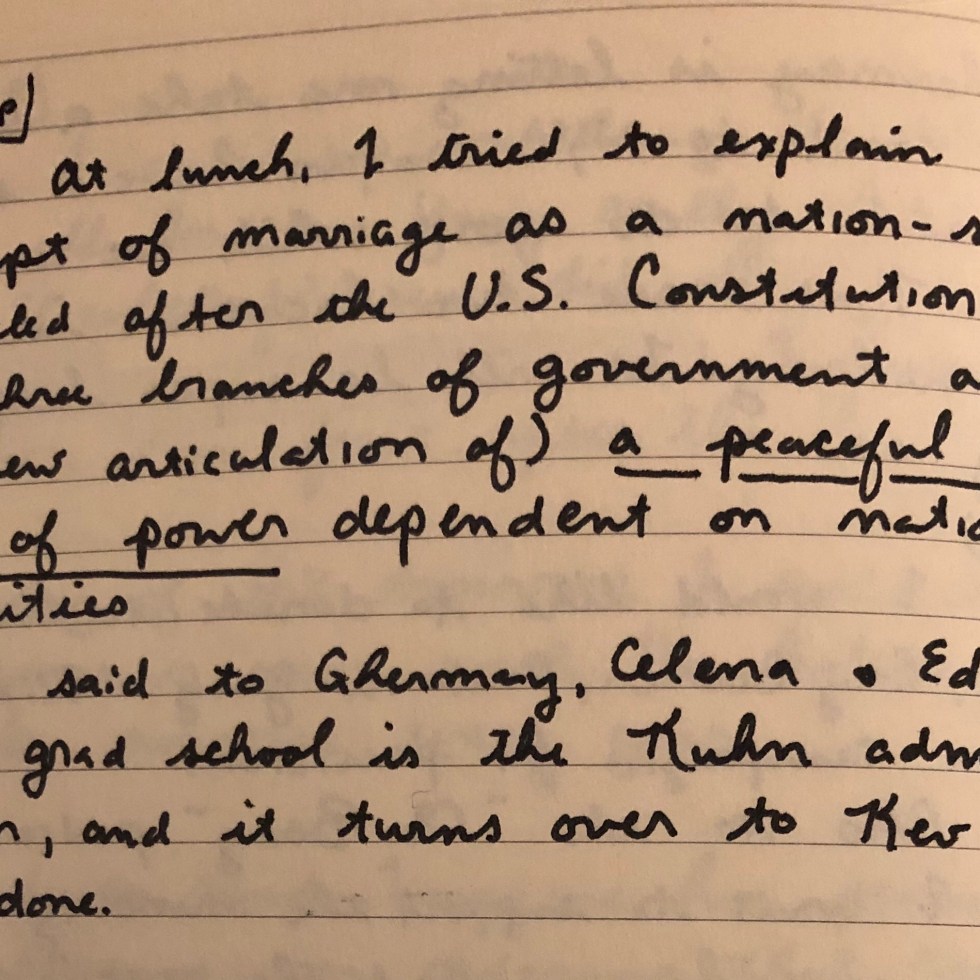 p]
at lunch, I tried to explain
pt of marriage as a nation-s
led after the U.S. Constitution
hree branches of government a
ew articulation of) a peaceful
of power dependent on natio
ities
said to Ghermay, Celena & Ed
grad school is the Kuhn adm
n, and it turns over to Kev
done.